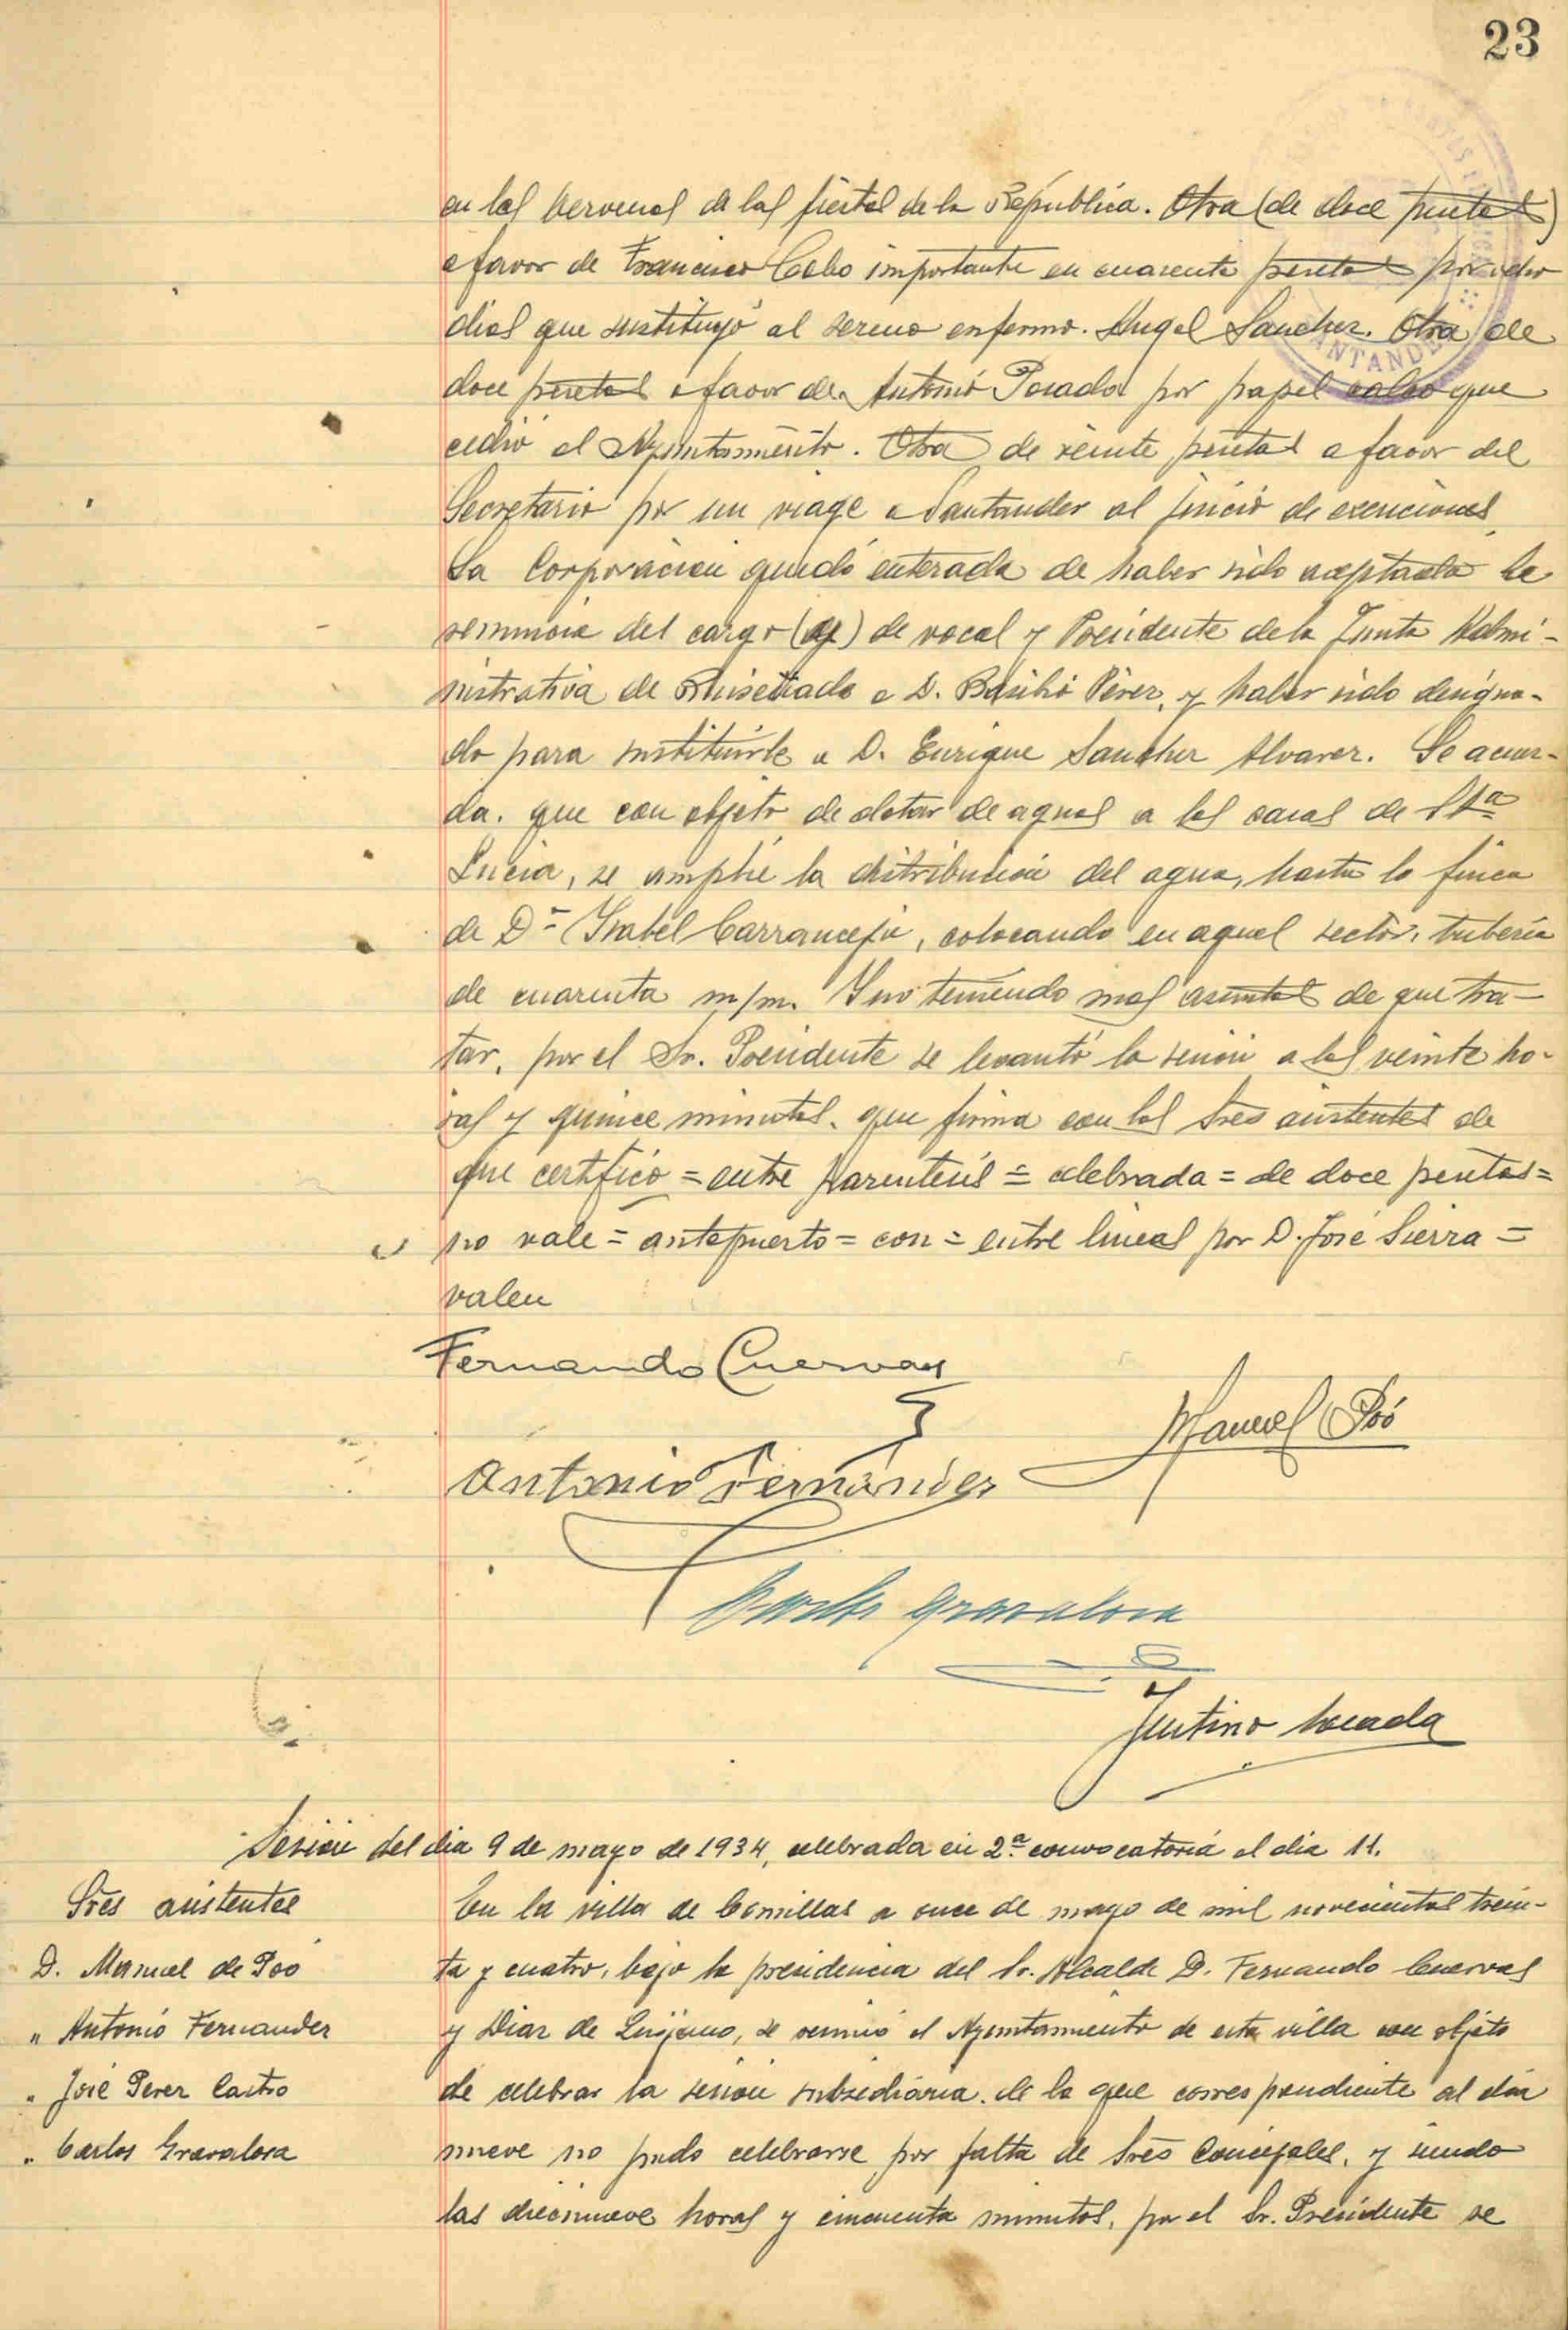 23
en las Vervenas de las fiestas de la República. Otra (de doce pesetas)
a favor de Francisco Cobo importante en cuarenta pesetas por ocho
dias que sustituyó al sereno enfermo. Angel Sanchez. Otra de
doce pesetas a favor de Antonio Posada por papel calco que
cedió al Ayuntamiento. Otra de veinte pesetas a favor del
Secretario por un viage a Santander al juicio de exenciones.
La Corporación quedó enterada de haber sido aceptada la
renuncia del cargo (y) de vocal y Presidente de la Junta Admi-
nistrativa de Ruiseñada a D. Basilio Pérez, y haber sido designa-
do para sustituirle a D. Enrique Sanchez Alvarez. Se acuer-
da. que con objeto de dotar de aguas a las casas de Stª
Lucia, se amplie la distribución del agua, hasta la finca
de Dª Isabel Carranceja, colocando en aquel sector, tubería
de cuarenta m/m. Y no teniendo mas asuntos de que tra-
tar, por el Sr. Presidente se levantó la sesión a las veinte ho-
ras y quince minutos. que firma con los Sres asistentes de
que certifico = entre parentesis = celebrada = de doce pesetas =
no vale = antepuerto = con = entre lineas por D. José Sierra =
valen
Fernando Cuervas
Manuel Poó
Antonio Fernández
Carlos Gravalosa
Justino Posada
Sesión del dia 9 de mayo de 1934, celebrada en 2ª convocatoria el dia 11.
Sres asistentes
D. Manuel de Poo
" Antonio Fernandez
" José Perez Castro
" Carlos Gravalosa
En la villa de Comillas a once de mayo de mil novecientos trein-
ta y cuatro, bajo la presidencia del Sr. Alcalde D. Fernando Cuervas
y Diaz de Quijano, se reunió el Ayuntamiento de esta villa con objeto
de celebrar la sesión subsidiaria. de la que correspondiente al dia
nueve no pudo celebrarse por falta de Sres Concejales, y siendo
las diecinueve horas y cincuenta minutos, por el Sr. Presidente se